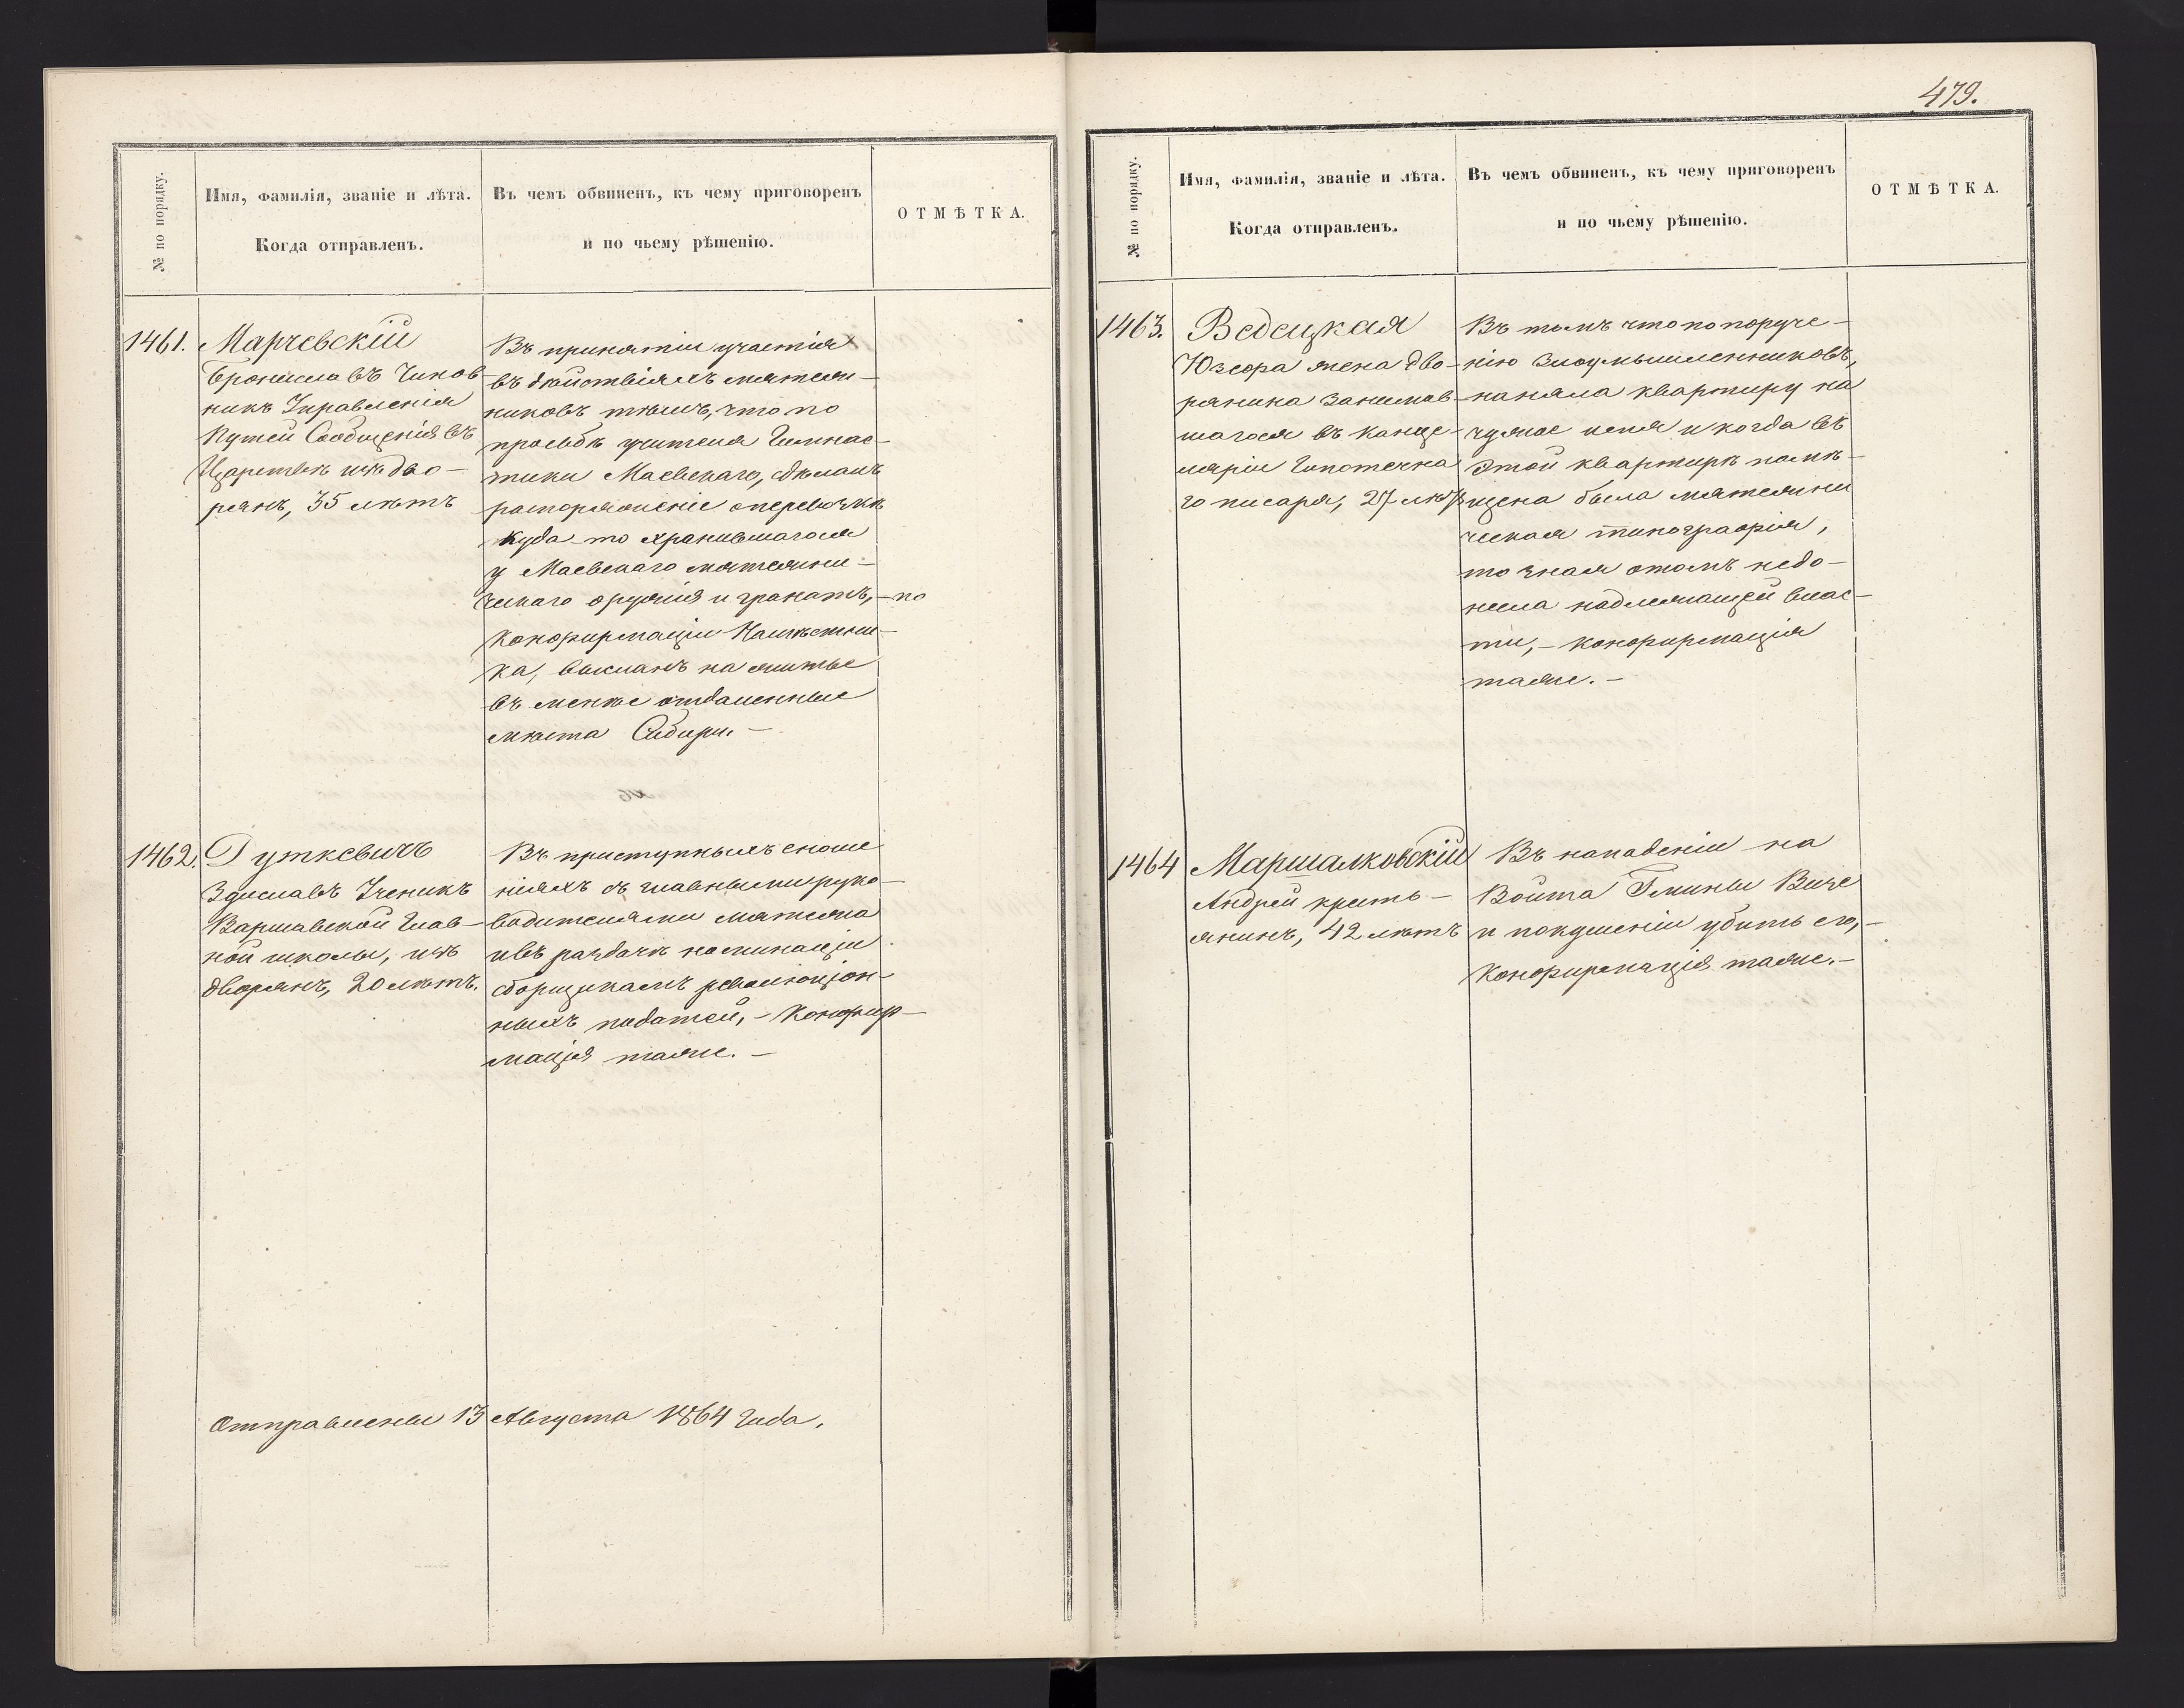 № по порядку.
Имя, фамилія, званіе и лѣта.
Когда отправленъ.
Въ чемъ обвиненъ, къ чему приговоренъ
и по чьему рѣшенію.
ОТМѢТКА.
1461.
Марчевскій
Брониславъ Чинов-
никъ Управленія
Путей Сообщенія въ
Царствѣ изъ дво-
рянъ, 35 лѣтъ
Въ принятіи участія
въ дѣйствіяхъ мятеж-
никовъ тѣмъ, что по
просьбѣ учителя Гимнас-
тики Маевскаго, сдѣлалъ
распоряженіе о перевозкѣ
куда-то хранившагося
у Маевскаго мятежни-
ческаго оружія и гранатъ, - по
конфирмаціи Намѣстни-
ка, высланъ на житье
въ менѣе отдаленные
мѣста Сибири. -
1462.
Дуткевичъ
Здиславъ Ученикъ
Варшавской Глав-
ной школы, изъ
дворянъ, 20 лѣтъ.
Въ приступныхъ сноше
ніяхъ съ главными руко-
водителями мятежа
и въ раздачѣ номинаціи
сборщикамъ революціон-
ныхъ податей, - Конфир-
мація таже. -
Отправлены 13 Августа 1864 Года.
479.
№ по порядку.
Имя, фамилія, званіе и лѣта.
Когда отправленъ.
Въ чемъ обвиненъ, къ чему приговоренъ
и по чьему рѣшенію.
ОТМѢТКА.
1463.
Ведецкая
Юзефа жена дво-
рянина занимав-
шагося въ канце-
ляріи Гипотечна
го писаря, 27 лѣтъ
Въ томъ что по поруче-
нію Злоумышленниковъ,
наняла квартиру на
чужое имя и когда въ
этой квартирѣ помѣ-
щена была мятежни
ческая типографія,
то зная о томъ недо-
несла надлежащей влас-
ти, - конфирмація
таже. -
1464
Маршалковскій
Андрей кресть-
янинъ, 42 лѣтъ
Въ нападеніи на
Войта Гмины Визе
и покушеніи убить его, -
Конфирмація таже. -